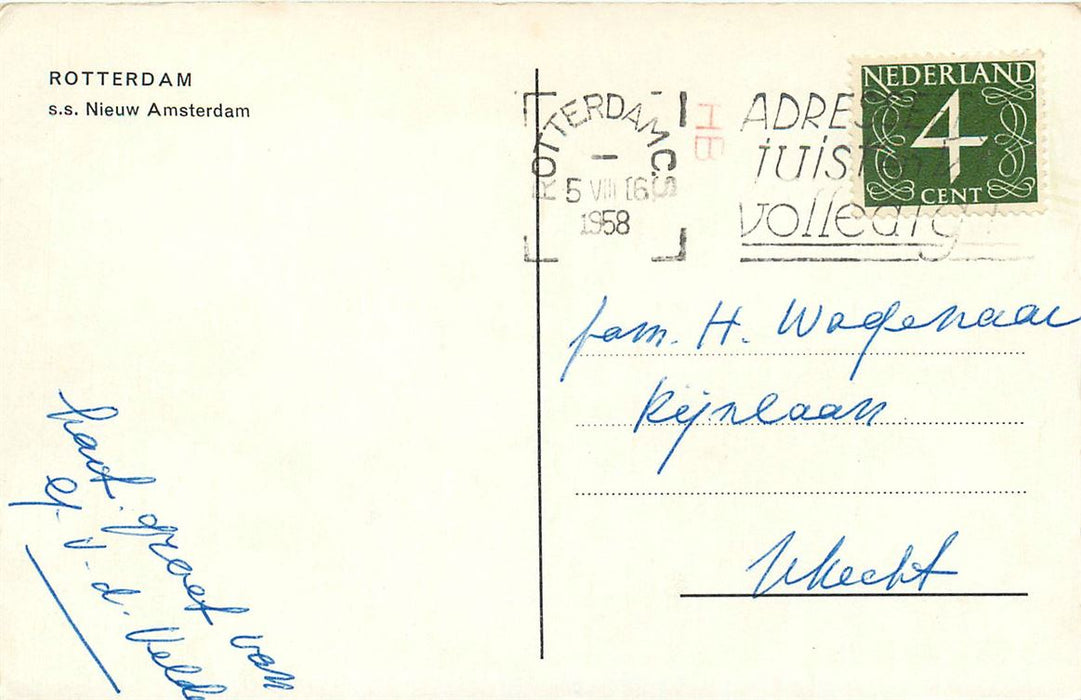 ROTTERDAM
s.s. Nieuw Amsterdam
ROTTERDAM C.S
5 VIII 16
1958
HB
ADRES
juist
volledig
NEDERLAND
4
CENT
fam. H. Wagenaar
Rijnlaan
Utrecht
hart. groet van
v. d. Velde